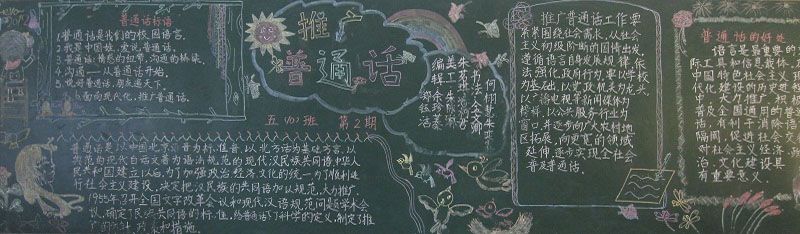 普通话标语
1. 普通话是我们的校园语言。
2. 我是中国娃，爱说普通话。
3. 普通话：情感的纽带，沟通的桥梁。
4. 沟通——从普通话开始。
5. 说好普通话，朋友遍天下。
6. 面向现代化，推广普通话。
推广
普通话
五(10)班 第2期
普通话是以中国北京语音为标准音，以北方话为基础方言，以
典范的现代白话文著为语法规范的现代汉民族共同语，中华人
民共和国建立以后，为了加强政治经济文化的统一，为了顺利进
行社会主义建设，决定把汉民族的共同语加以规范，大力推广，
1955年召开全国文字改革会议和现代汉语规范问题学术会
议，确定了民族共同语的标准，给普通话下了科学的定义，制定了推
广的方针，政策和措施。
书法：
美工：朱
编辑：余
推广普通话工作要
紧紧围绕社会需求，从社会
主义初级阶段的国情出发，
遵循语言自身发展规律，依
法强化政府行为，要以学校
为基础，以党政机关为龙头，
以广播电视等新闻媒体为
榜样，以公共服务行业为
窗口，并逐步向广大农村地
区拓展，向更宽的领域
延伸，逐步实现全社会
普及普通话。
普通话的好处
语言是最重要的
际工具和信息载体，
中国特色社会主义现
代化建设的历史进
中，大力推广，积极
普及全国通用的普
通话，利于消除语言
隔阂，促进社会交
对社会主义经济、政
治、文化建设具
有重要意义。